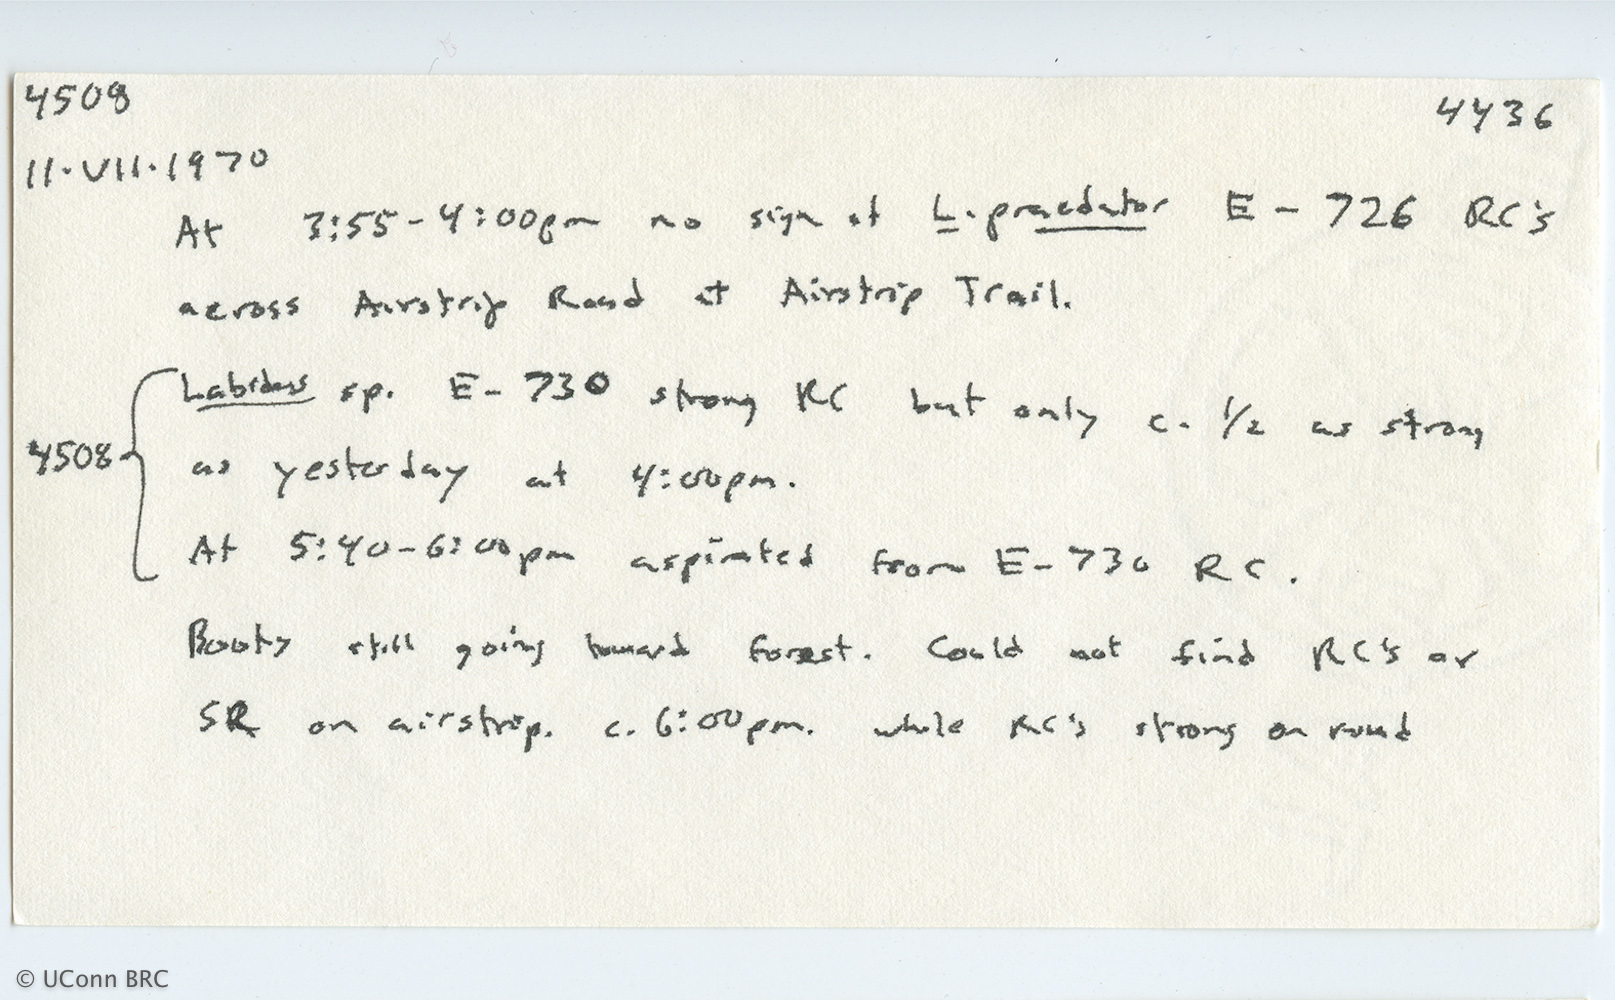 4508 4436
11.VII.1970
At 3:55-4:00pm no sign of L. praedator E-726 RC's
across Airstrip Road at Airstrip Trail.
Labidus sp. E-730 strong RC but only c. 1/2 as strong
4508
as yesterday at 4:00pm.
At 5:40-6:00pm aspirated from E-730 RC.
Booty still going toward forest. Could not find RC's or
SR on airstrip. c. 6:00pm. while RC's strong on road
© UConn BRC